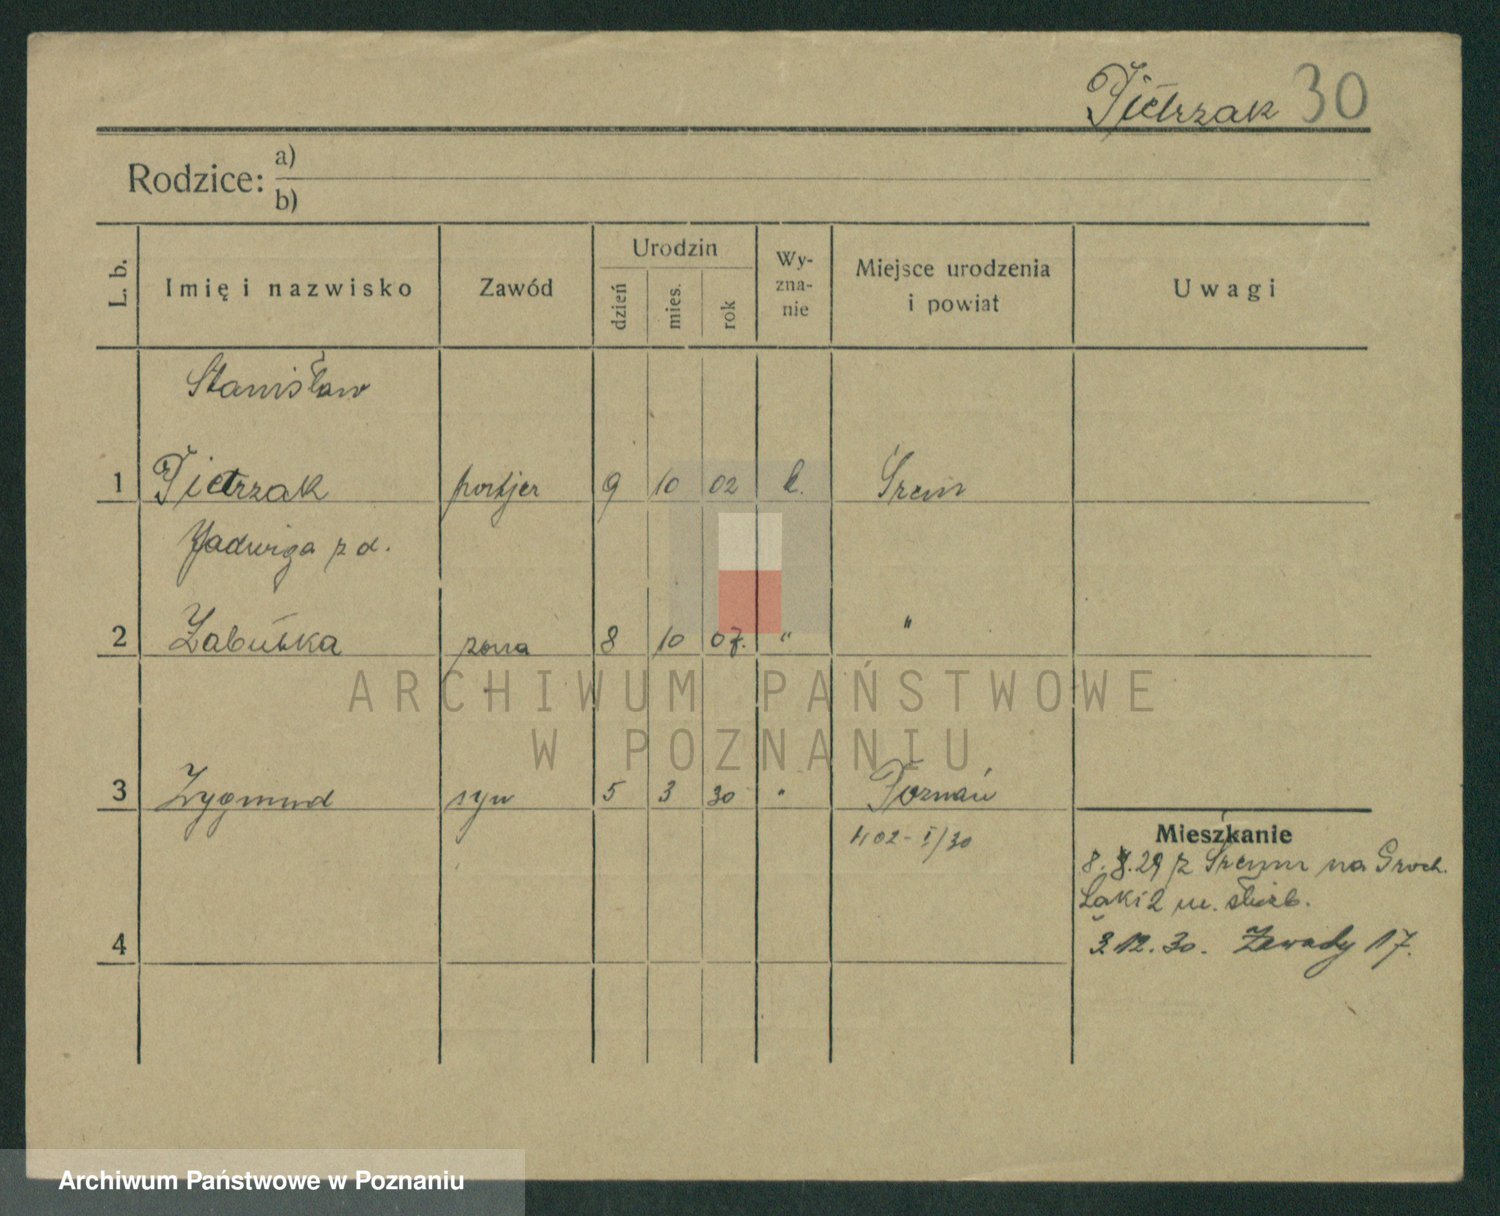 Pietrzak 30
Rodzice: a)
b)
L. b. Imię i nazwisko Zawód Urodzin dzień mies. rok Wy-zna-nie Miejsce urodzenia i powiat Uwagi
Stanisław
1 Pietrzak portjer 9 10 02 k. Śrem
Jadwiga z d.
2 Żabińska żona 8 10 07. " "
ARCHIWUM PAŃSTWOWE
W POZNANIU
3 Zygmund syn 5 3 30 " Poznań
402-I/30
Mieszkanie
8. 8. 29 z Śremu na Groch.
Łaki 2 m.
4 3 12. 30. Zawady 17.
Archiwum Państwowe w Poznaniu